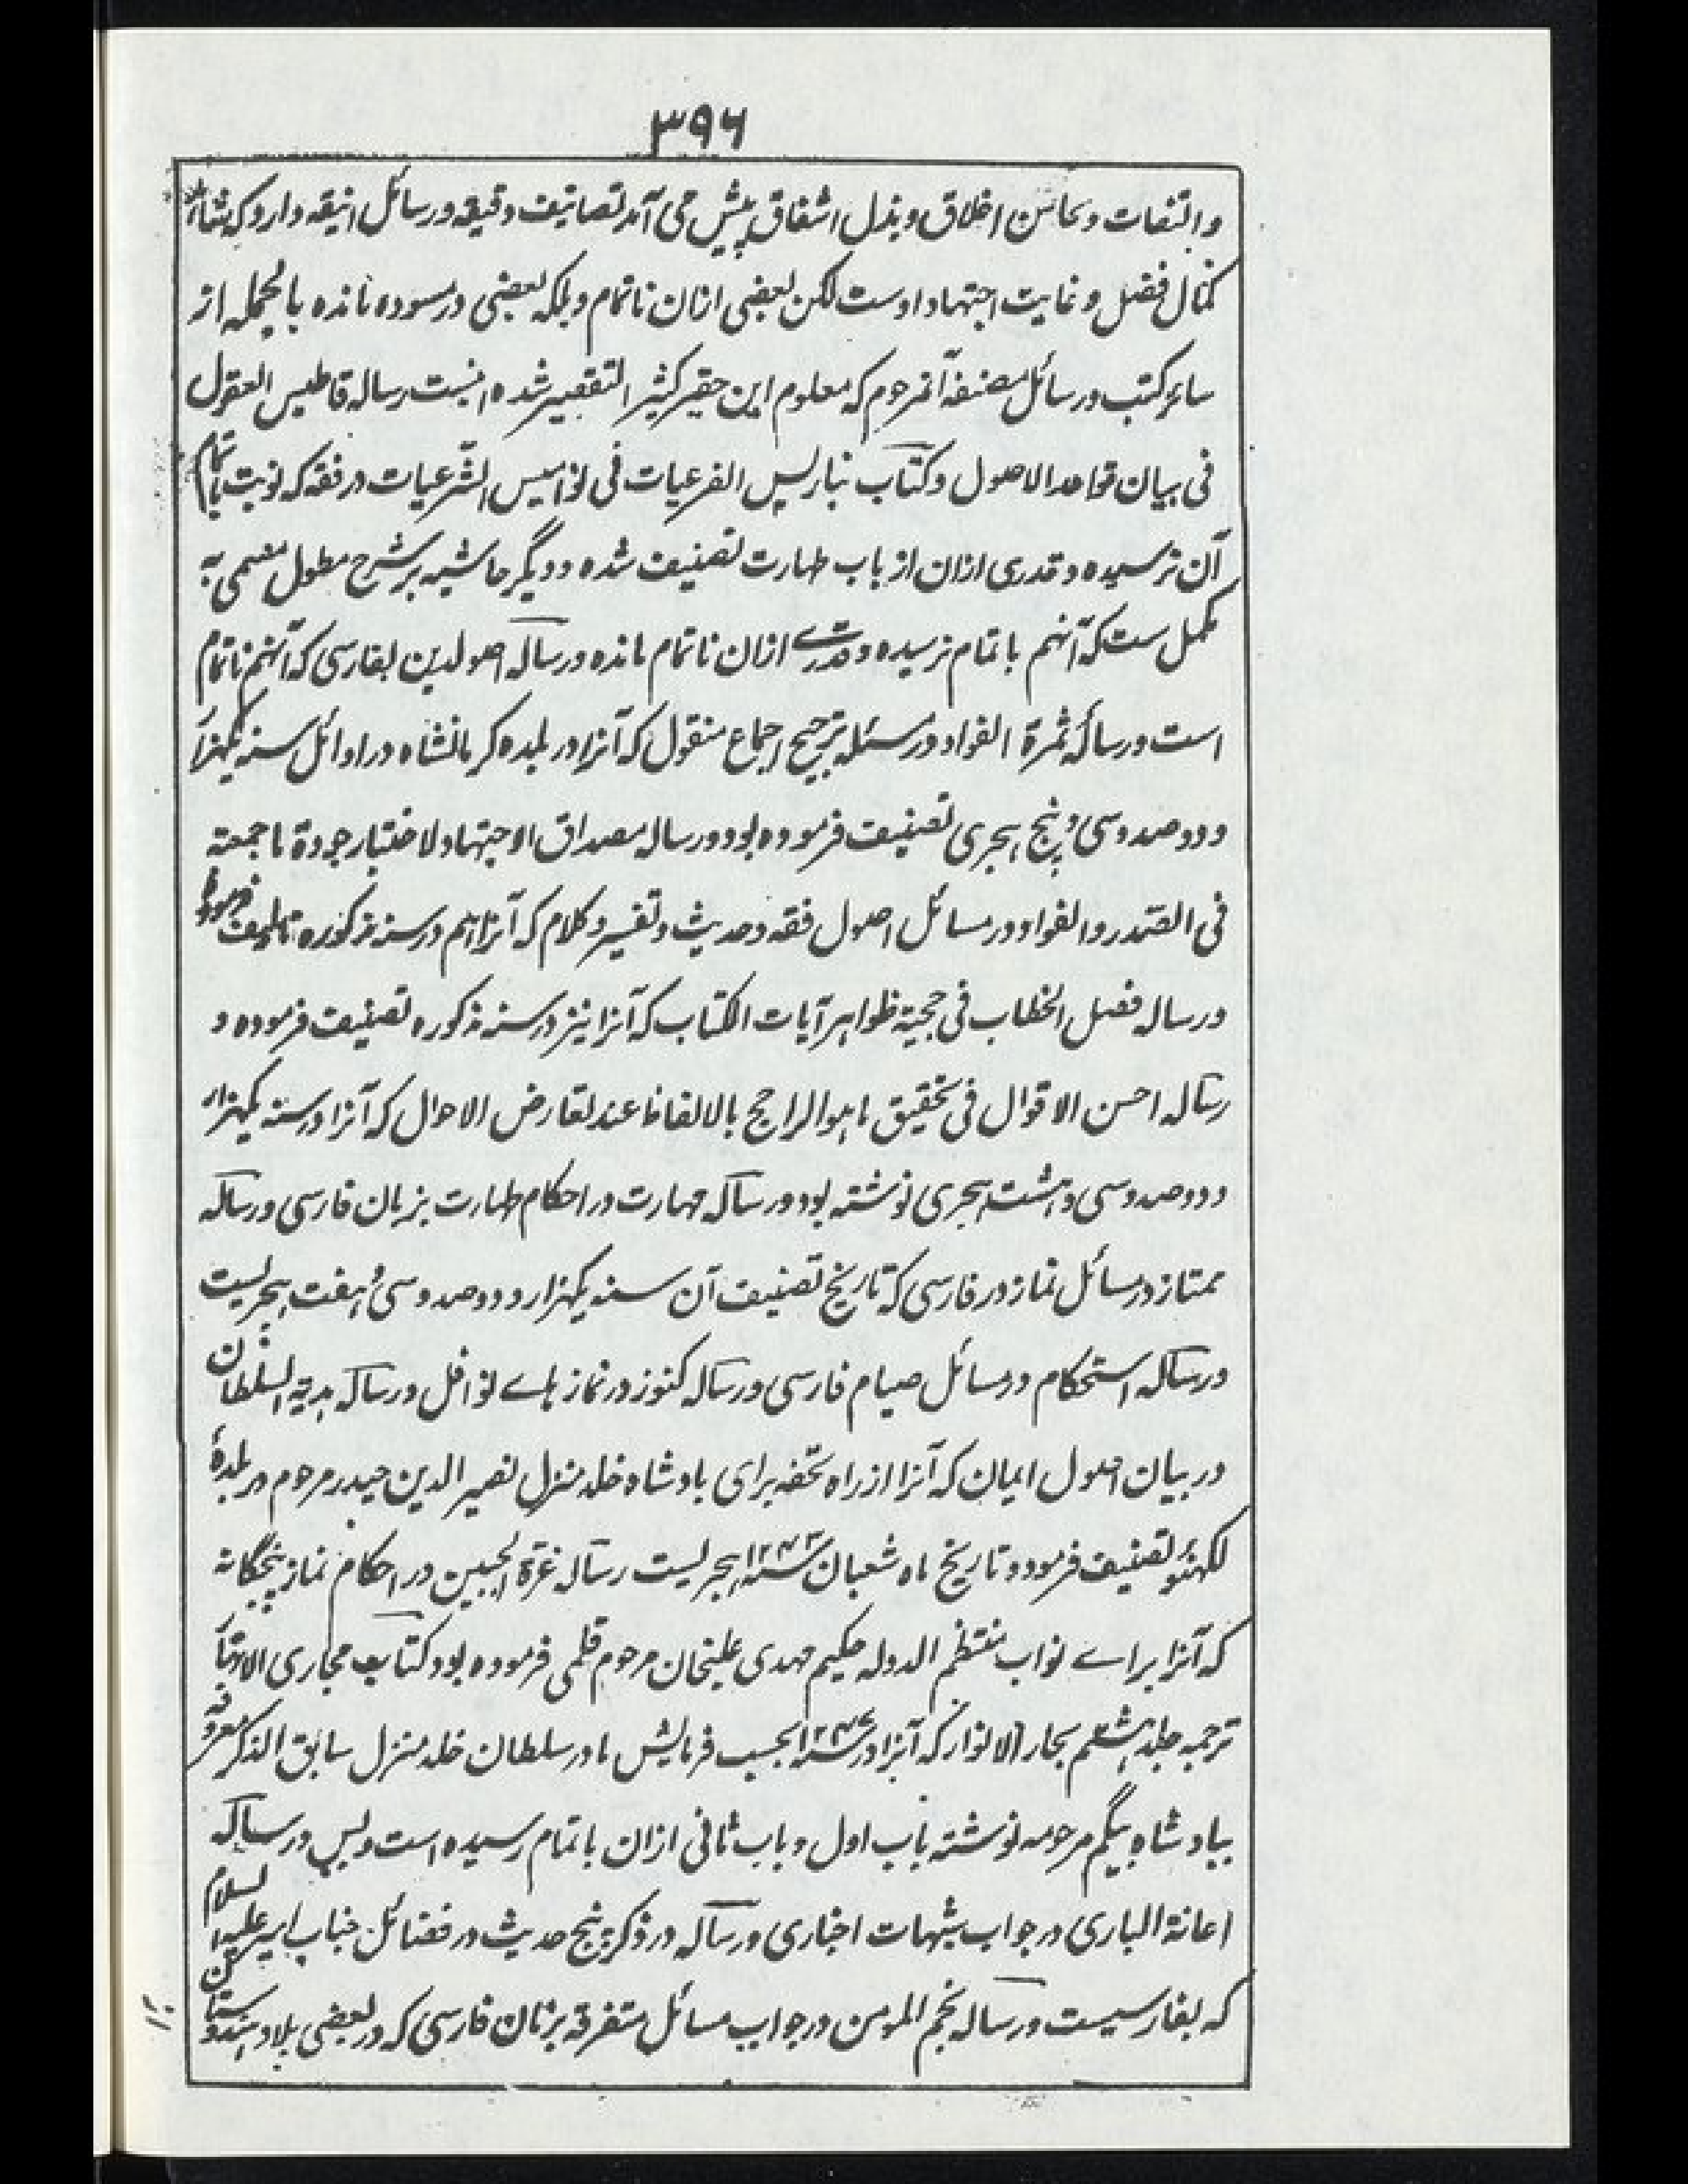 ۳۹۶
و التفات و محاسن اخلاق و بذل اشفاق پیش می آمد تصانیف دقیقه و رسائل انیقه دارد که
کمال فضل و غایت اجتهاد اوست لکن بعضی ازان ناتمام و بلکه بعضی در مسوده مانده بالجمله از
سائر کتب و رسائل مصنفهٔ آنمرحوم که معلوم این حقیر کثیر التقصیر شده اینست رساله قاطیس العقول
فی بیان قواعد الاصول و کتاب الفرعیات فی نوامیس الشرعیات در فقه که نوبت باتمام
آن نرسیده و قدری ازان از باب طهارت تصنیف شده و دیگر حاشیه بر شرح مطول مسمی به
مکمل ست که آنهم باتمام نرسیده و قدرے ازان ناتمام مانده و رساله اصولدین بفارسی که آنهم ناتمام
است و رسالهٔ ثمرة الفواد در مسئله ترجیح اجماع منقول که آنرا در بلده کرمانشاه در اوائل سنه یکهزار
و دو صد و سی و پنج هجری تصنیف فرموده بود و رساله مصداق الاجتهاد لاختبار جودة ما جمعته
فی الصدر و الفواد در مسائل اصول فقه و حدیث و تفسیر و کلام که آنرا هم در سنه مذکوره تالیف فرموده
و رساله فصل الخطاب فی حجیة ظواهر آیات الکتاب که آنرا نیز در سنه مذکوره تصنیف فرموده و
رساله احسن الاقوال فی تحقیق ما هو الراجح بالالفاظ عند تعارض الاحوال که آنرا در سنه یکهزار
و دو صد و سی و هشت هجری نوشته بود و رساله مهارت در احکام طهارت بزبان فارسی و رساله
ممتاز در مسائل نماز در فارسی که تاریخ تصنیف آن سنه یکهزار و دو صد و سی و هفت هجریست
و رساله استحکام در مسائل صیام فارسی و رساله کنوز در نماز ہاے نوافل و رساله هدیة السلطان
در بیان اصول ایمان که آنرا از راه تحفه برای بادشاه خلد منزل نصیر الدین حیدر مرحوم در بلدهٔ
لکهنؤ تصنیف فرموده و تاریخ ماه شعبان سنه ۱۲۴۳ هجریست رساله غرة الجبین در احکام نماز پنجگانه
که آنرا براے نواب منتظم الدوله حکیم مهدی علیخان مرحوم قلمی فرموده بود و کتاب مجاری
ترجمه جلد هشتم بحار الانوار که آنرا در سنه بحسب فرمایش مادر سلطان خلد منزل سابق الذکر معروفه
ببادشاه بیگم مرحومه نوشته باب اول و باب ثانی ازان باتمام رسیده است و بس و رساله
اعانة الباری در جواب شبهات اخباری و رساله در ذکر پنج حدیث در فضائل جناب امیر علیه السلام
که بفارسیست و رساله نجم المومن در جواب مسائل متفرقه بزبان فارسی که در بعضی بلاد هندوستان